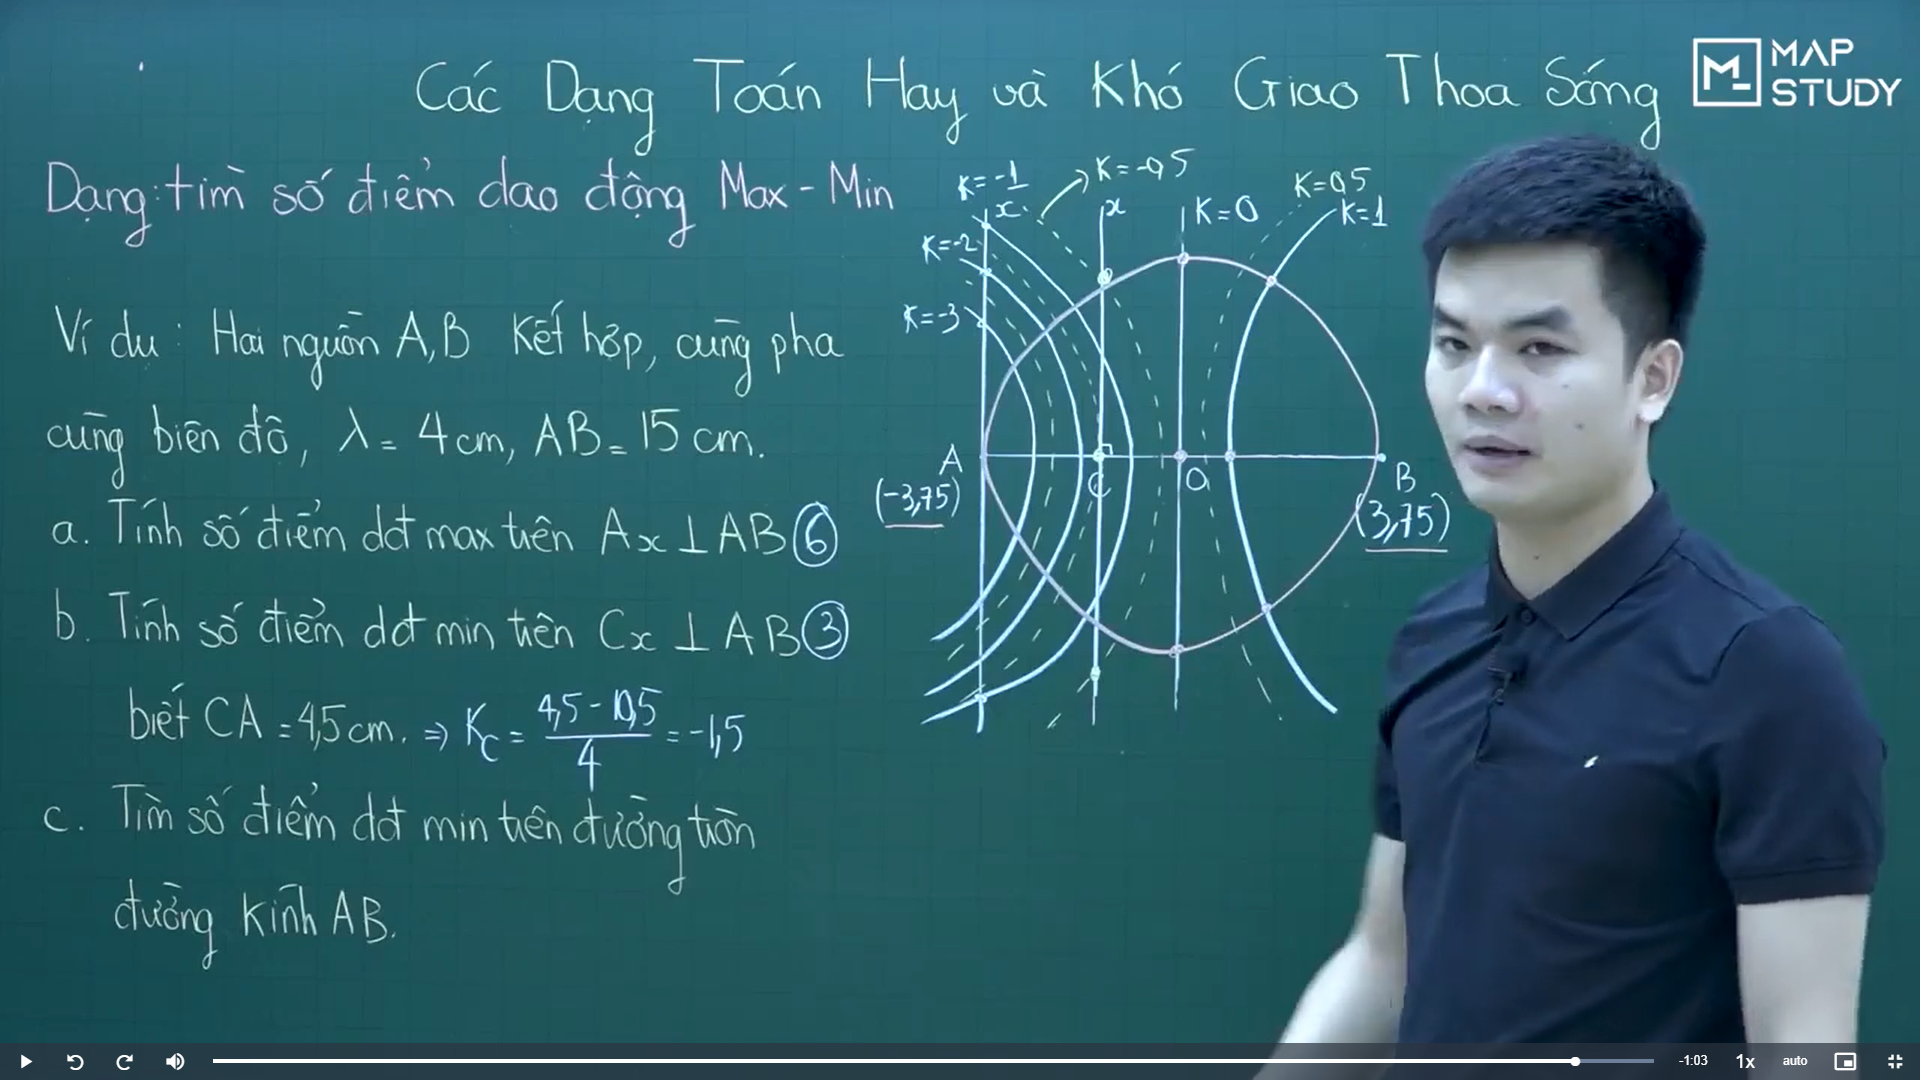 Các Dạng Toán Hay và Khó Giao Thoa Sóng
MAP
STUDY
Dạng: tìm số điểm dao động Max - Min
Ví dụ: Hai nguồn A, B kết hợp, cùng pha
cùng biên độ, λ = 4 cm, AB = 15 cm.
a. Tính số điểm dđ max trên Ax ⊥ AB 6
b. Tính số điểm dđ min trên Cx ⊥ AB 3
biết CA = 4,5 cm. ⇒ Kc = (4,5 - 10,5)/4 = -1,5
c. Tìm số điểm dđ min trên đường tròn
đường kính AB.
K=-1
K=-0,5
K=0
K=0,5
K=1
x
x
K=-2
K=-3
A
(-3,75)
C
O
B
(3,75)
-1:03
1x
auto